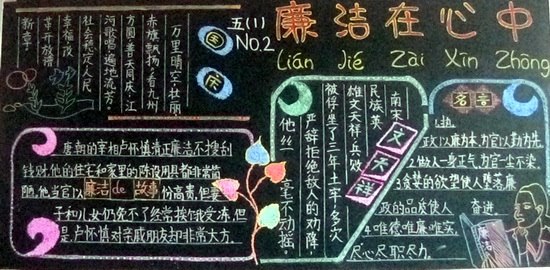 廉洁在心中
Lián Jié Zài Xīn Zhōng
五(1)
No.2
国庆
万里晴空壮丽
赤旗飘扬看九州
方圆普天同庆江
河歌唱遍地流芳
社会稳定人民
幸福夜
革开放谱
新章
唐朝的宰相卢怀慎清正廉洁不搜刮
钱财,他的住宅和家里的陈设用具都非常简
陋,他当官以
份高贵,但妻
廉洁de 故事
子和儿女仍免不了经常挨饿受冻,但
是,卢怀慎对亲戚朋友却非常大方。
文天祥
南宋
民族英
雄文天祥兵败
被俘坐了三年土牢多次
严辞拒绝敌人的劝降,
他丝
毫不动摇,
名言
1.执
政以廉为本,为官以勤为先
2.做人一身正气,为官一尘不染
3.贪婪的欲望使人堕落廉
政的品质使人 奋进
4.唯德唯廉唯实
尽心尽职尽力。
廉洁